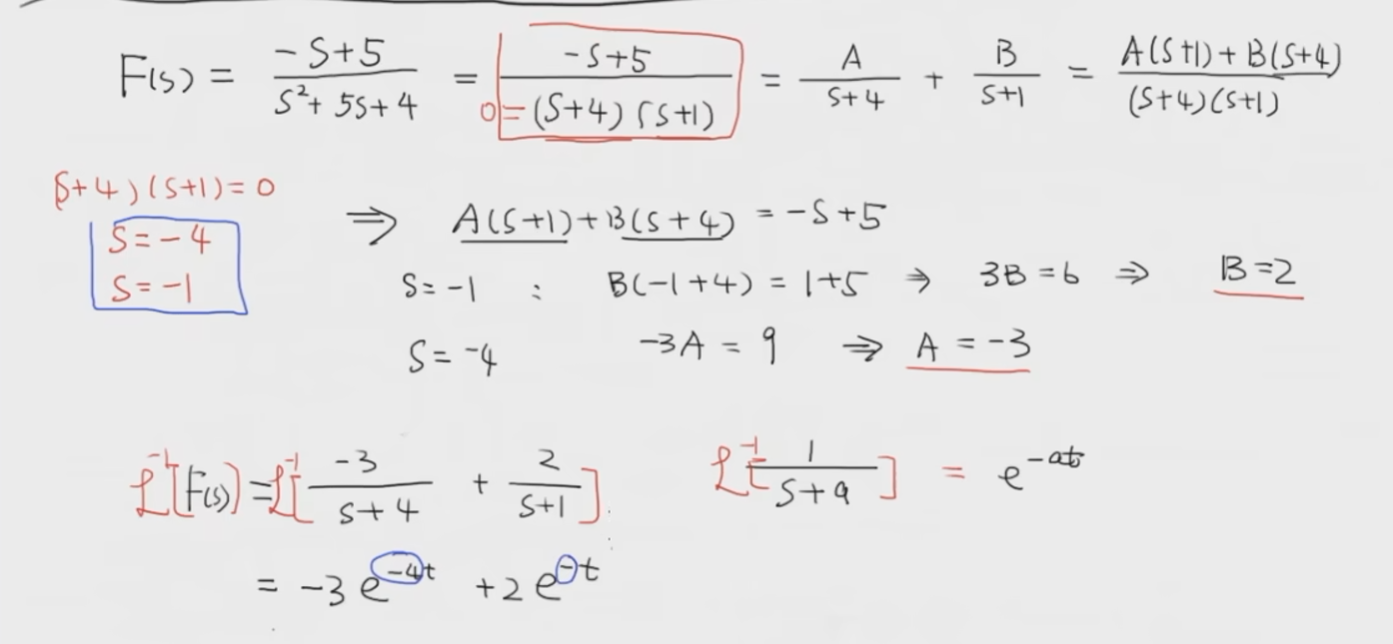 F(s) = (-S+5)/(S²+5S+4) = (-S+5)/(0=(S+4)(S+1)) = A/(S+4) + B/(S+1) = (A(S+1)+B(S+4))/((S+4)(S+1))
(S+4)(S+1)=0
S=-4
S=-1
⇒ A(S+1)+B(S+4) = -S+5
S=-1 : B(-1+4) = 1+5 ⇒ 3B=6 ⇒ B=2
S=-4 -3A = 9 ⇒ A = -3
ℒ⁻¹[F(s)] = ℒ⁻¹[-3/(S+4) + 2/(S+1)] ℒ⁻¹[1/(S+a)] = e^(-at)
= -3e^(-4t) +2e^(-t)